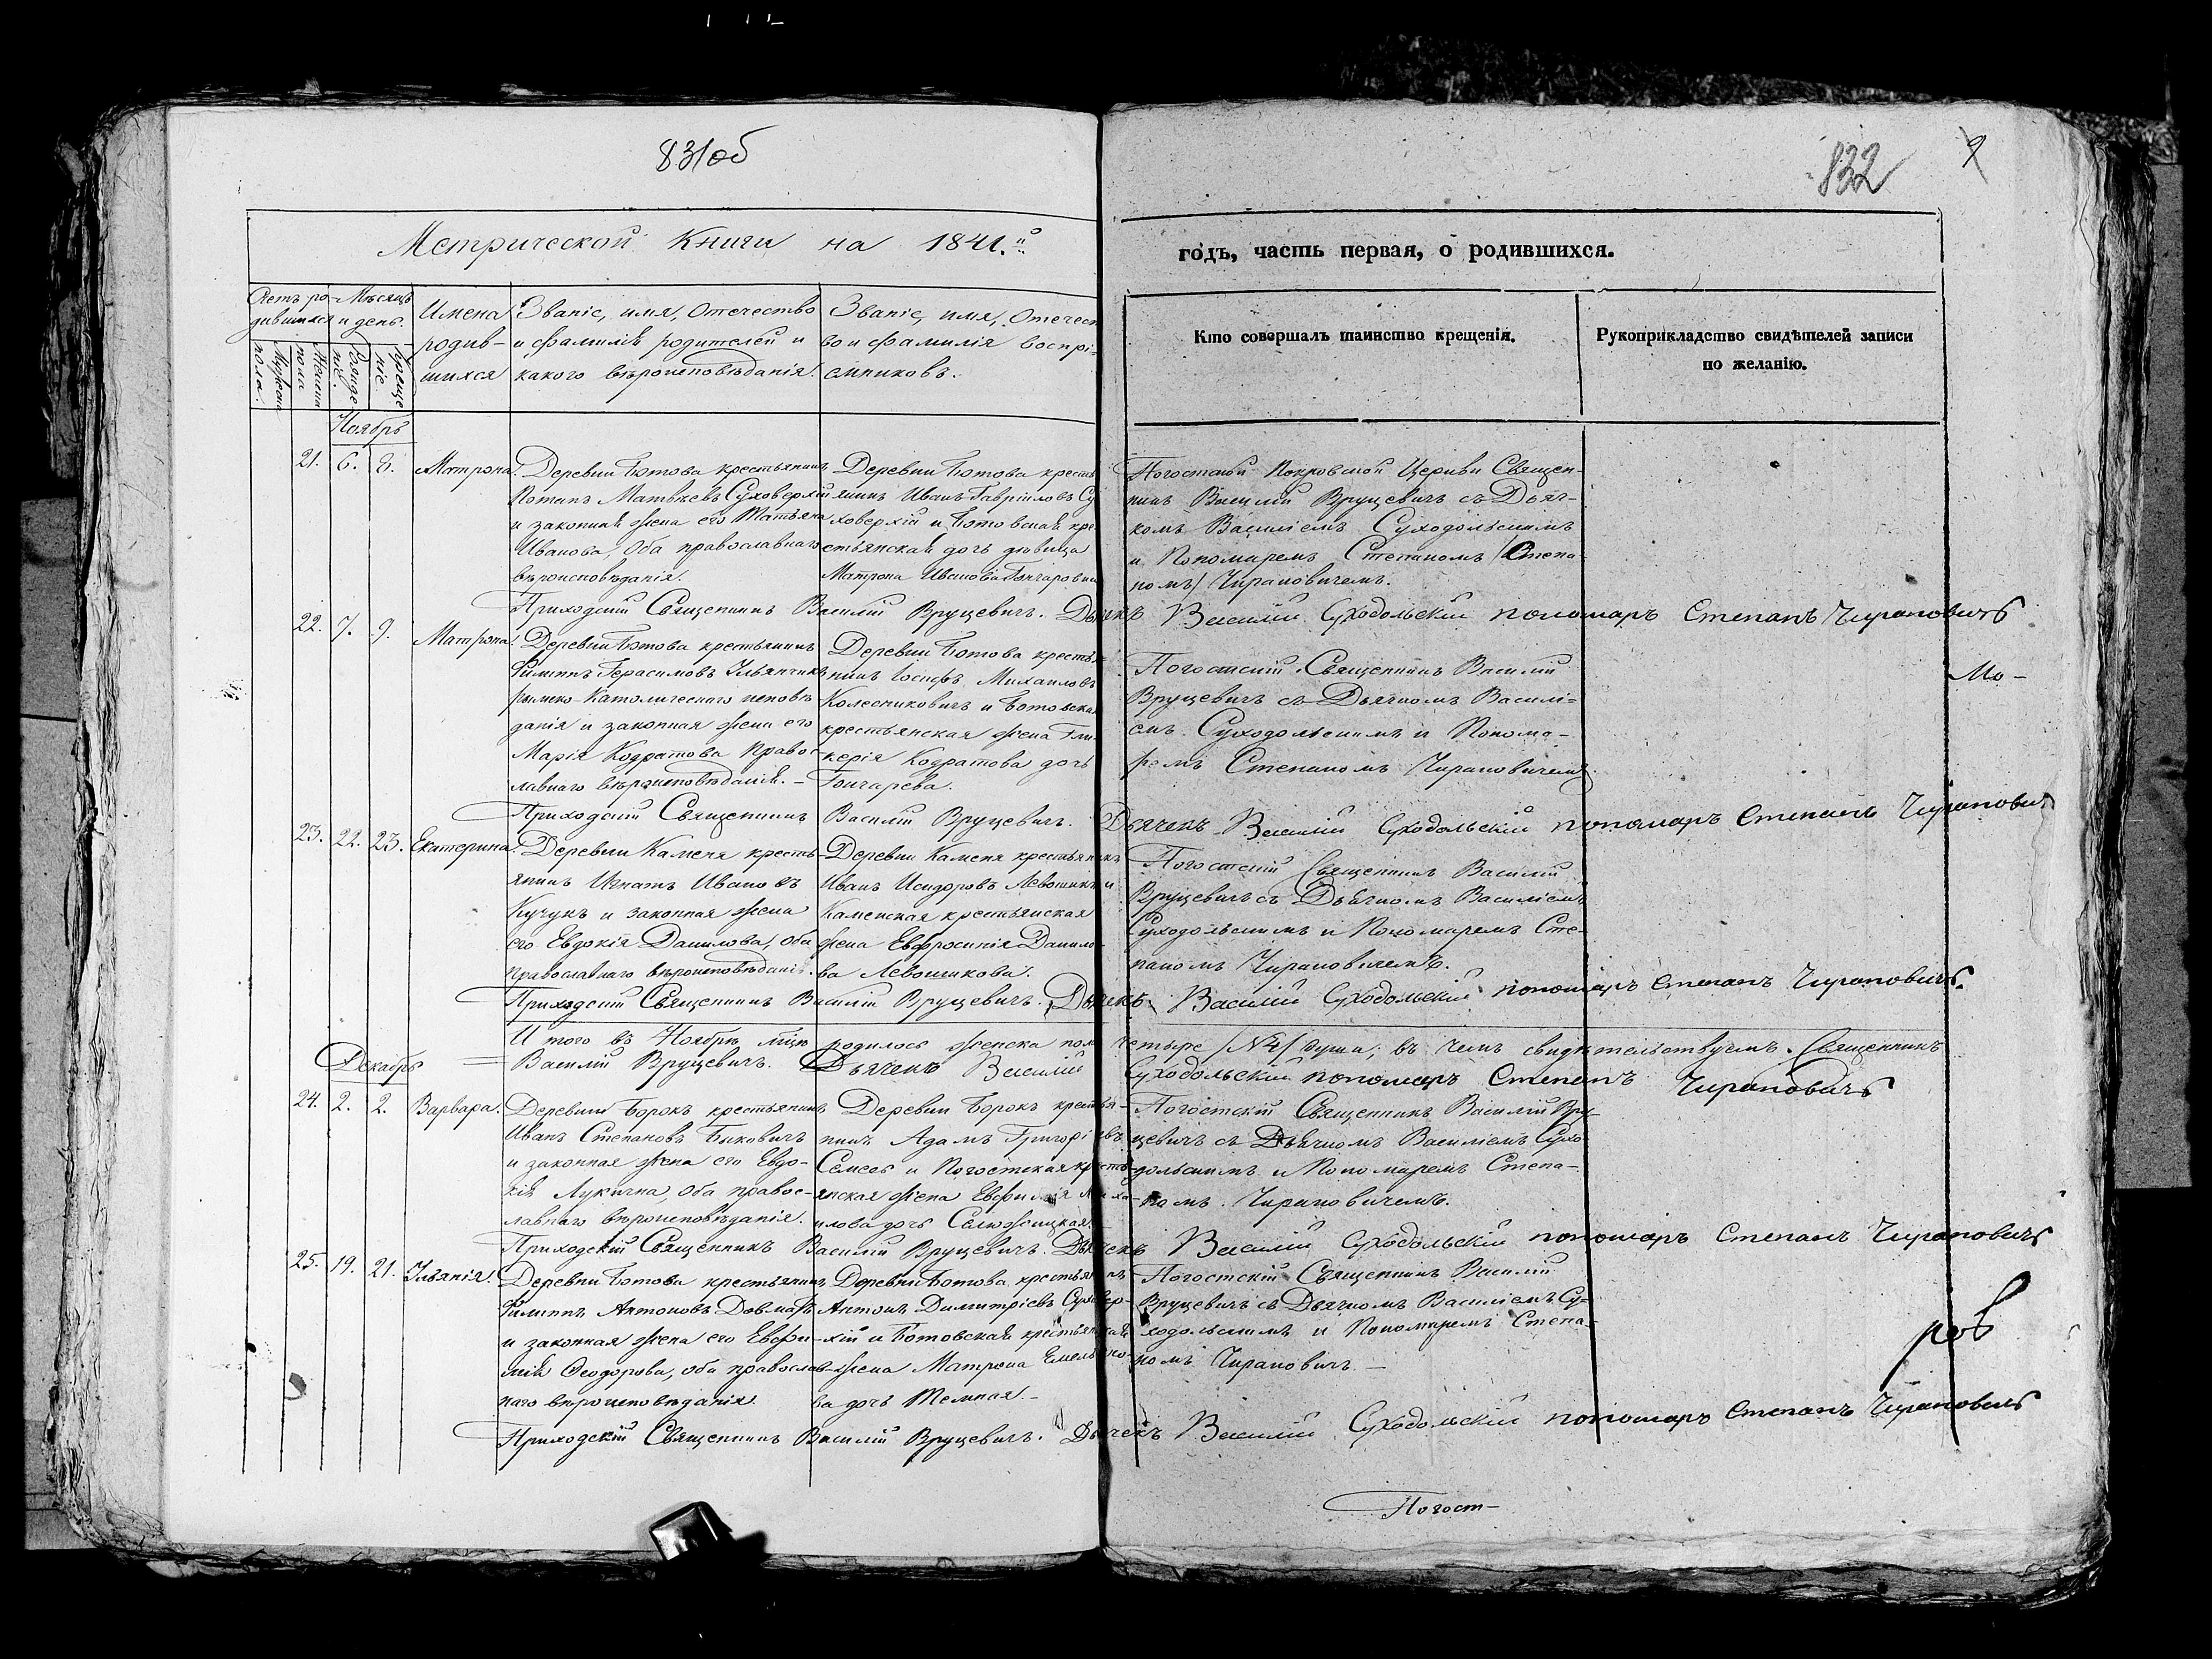 831об
832
9
Метрической Книги на 1841.й
годъ, часть первая, о родившихся.
Счетъ ро-
дившихся
Мѣсяцъ
и день.
Мужска
пола.
Женска
пола
Рожде
нiе.
Креще
нiе
Имена
родив-
шихся
Званiе, имя, Отечество
и фамилiя родителей и
какого вѣроисповѣданiя.
Званiе, имя, Отечест
во и фамилiя воспрi-
емниковъ.
Кто совершалъ таинство крещенiя.
Рукоприкладство свидѣтелей записи
по желанiю.
Ноябрь
21. 6. 8. Матрона.
Деревни Ботова крестьянинъ
Потапъ Матвѣевъ Суховерхiй
и законная жена его Татьяна
Иванова, Оба православнаго
вѣроисповѣданiя.
Деревни Ботова кресть
янинъ Иванъ Гаврiиловъ Су
ховерхiй и Ботовская кре
стьянская дочь дѣвица
Матрона Иванова Гончаровна
Погостской Покровской Церкви Священ-
никъ Василiй Вруцевичъ съ Дьяч-
комъ Василiемъ Суходольскимъ
и Пономаремъ Степаномъ /Степа-
номъ/ Чирановичемъ.
Приходскiй Священникъ Василiй Вруцевичъ. Дьячекъ Василiй Суходольскiй пономаръ Степанъ Чирановичъ
22. 7. 9. Матрона.
Деревни Ботова крестьянинъ
Филиппъ Герасимовъ Ульянчикъ
римско-Католическаго исповѣ
данiя и законная жена его
Марiя Кодратова Право-
славнаго вѣроисповѣданiя. -
Деревни Ботова кресть-
янинъ Iосифъ Михаиловъ
Колесниковичъ и Ботовская
крестьянская жена Гли-
керiя Кодратова дочь
Гончарева.
Погостскiй Священникъ Василiй
Вруцевичъ съ Дьячкомъ Василi-
емъ Суходольскимъ и Понома-
ремъ Степаномъ Чирановичемъ.
Мо-
Приходскiй Священникъ Василiй Вруцевичъ. Дьячекъ Василiй Суходольскiй пономаръ Степанъ Чирановичъ
23. 22. 23. Екатерина.
Деревни Каменя кресть-
янинъ Игнатъ Ивановъ
Кучукъ и законная жена
его Евдокiя Данилова, Оба
православнаго вѣроисповѣданiя.
Деревни Каменя крестьянинъ
Иванъ Исидоровъ Левошикъ и
Каменская крестьянская
жена Евфросинiя Данило-
ва Левошикова.
Погостскiй Священникъ Василiй
Вруцевичъ съ Дьячкомъ Василiемъ
Суходольскимъ и Пономаремъ Сте-
паномъ Чирановичемъ.
Приходскiй Священникъ Василiй Вруцевичъ. Дьячекъ Василiй Суходольскiй пономаръ Степанъ Чирановичъ.
И того въ Ноябрѣ мѣцѣ родилось женска пола четыре /№4/ душа, въ чемъ свидѣтельствуемъ. Священникъ
Василiй Вруцевичъ. Дьячекъ Василiй Суходольскiй пономаръ Степанъ Чирановичъ
Декабрь
24. 2. 2. Варвара.
Деревни Борокъ крестьянинъ
Иванъ Степановъ Быковичъ
и законная жена его Евдо-
кiя Лукична, Оба правос-
лавнаго вѣроисповѣданiя.
Деревни Борокъ крестья-
нинъ Адамъ Григорiевъ
и Погостская кресть-
янская жена Евфимiя Миха-
илова дочь
Погостскiй Священникъ Василiй Вру-
цевичъ съ Дьячкомъ Василiемъ Сухо-
дольскимъ и Пономаремъ Степа-
номъ. Чирановичемъ.
Приходскiй Священникъ Василiй Вруцевичъ. Дьячекъ Василiй Суходольскiй пономаръ Степанъ Чирановичъ
25. 19. 21. Ульянiя.
Деревни Ботова крестьянинъ
Филиппъ Антоновъ Довнаръ
и законная жена его Евфи-
мiя Ѳеодорова, оба православ-
наго вѣроисповѣданiя.
Деревни Ботова крестьянинъ
Антонъ Димитрiевъ Суховер-
хiй и Ботовская крестьянская
жена Матрона Емельяно-
ва дочь Темная. -
Погостскiй Священникъ Василiй
Вруцевичъ съ Дьячкомъ Василiемъ Су-
ходольскимъ и Пономаремъ Степа-
номъ Чирановичъ. -
ров
Приходскiй Священникъ Василiй Вруцевичъ. Дьячекъ Василiй Суходольскiй пономаръ Степанъ Чирановичъ
Погост-